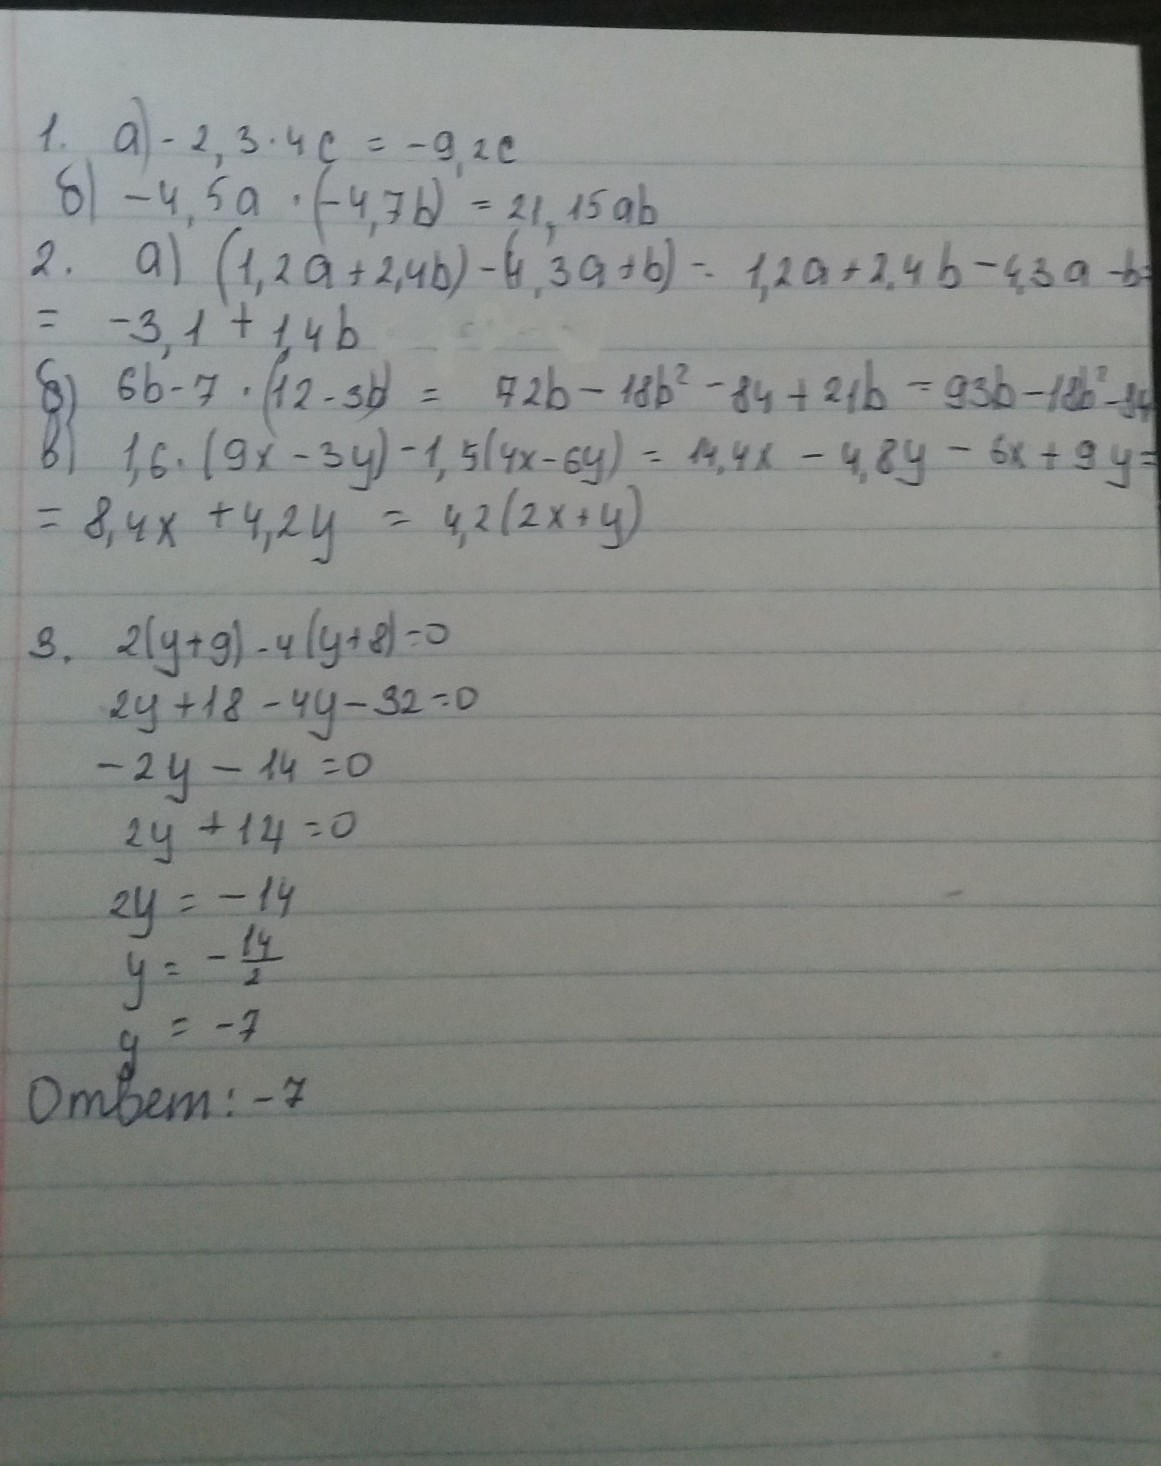 1. а) -2,3·4c = -9,2c
б) -4,5a · (-4,7b) = 21,15ab
2. а) (1,2a+2,4b)-(4,3a+b) = 1,2a+2,4b-4,3a-b=
= -3,1 + 1,4b
б) 6b-7·(12-3b) = 72b-18b²-84+21b = 93b-18b²-84
в) 1,6·(9x-3y)-1,5(4x-6y) = 14,4x - 4,8y - 6x + 9y=
= 8,4x + 4,2y = 4,2(2x+y)
3. 2(y+9)-4(y+8)=0
2y+18-4y-32=0
-2y-14=0
2y+14=0
2y = -14
y = -14/2
y = -7
Ответ: -7